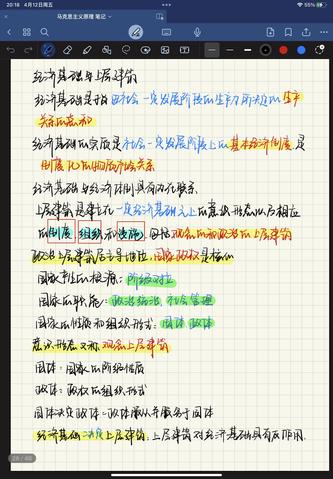 20:18 4月12日周五
55%
马克思主义原理 笔记
经济基础与上层建筑
经济基础是指由社会一定发展阶段的生产力所决定的生产
关系的总和
经济基础的实质是社会一定发展阶段上的基本经济制度,是
制度化的物质社会关系
经济基础与经济体制具有内在联系
上层建筑是建立在一定经济基础之上的意识形态以及相应
的制度 组织和设施,包括观念的和政治的上层建筑
政治上层建筑居主导地位,国家政权是核心
国家产生的根源:阶级对立
国家的职能:政治统治,社会管理
国家的性质和组织形式:国体 政体
意识形态又称观念上层建筑
国体:国家的阶级性质
政体:政权的组织形式
国体决定政体,政体服从并服务于国体
经济基础决定上层建筑,上层建筑对经济基础具有反作用